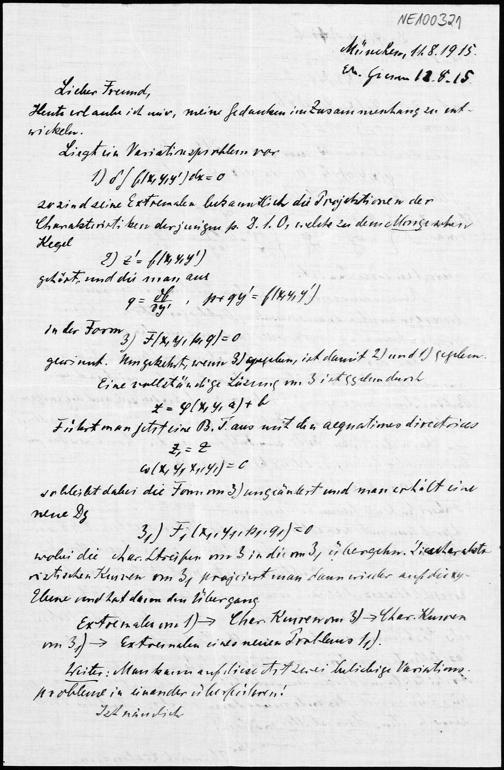 NE100321
München, 11.8.1915.
Lieber Freund,
Heute erlaube ich mir, meine Gedanken im Zusammenhang zu ent-
wickeln.
Liegt ein Variationsproblem vor
1) δ∫f(x,y,y')dx=0
so sind seine Extremalen bekanntlich die Projektionen der
Charakteristiken derjenigen p. D. 1. O, welche zu dem Mongeschen
Kegel
2) z' = f(x,y,y')
gehört, und die man aus
q = ∂f/∂y' , p+qy' = f(x,y,y')
in der Form
3) F(x,y,p,q)=0
gewinnt. Umgekehrt, wenn 3) gegeben, ist damit 2) und 1) gegeben.
Eine vollständige Lösung von 3 ist gegeben durch
z = φ(x,y,a)+b
Führt man jetzt eine B. T. aus mit den aequationes directrices
z₁ = z
ω(x,y,x₁,y₁)=0
so bleibt dabei die Form von 3) ungeändert und man erhält eine
neue Dg
3₁) F₁(x₁,y₁,p₁,q₁)=0
wobei die char. Streifen von 3 in die von 3₁ übergehn. Die charakte
ristischen Kurven von 3₁ projiciert man dann wieder auf die xy-
Ebene und hat dann den Übergang
Extremalen von 1) → Char. Kurven von 3) → Char. Kurven
von 3₁) → Extremalen eines neuen Problems 1₁).
Weiter: Man kann auf diese Art zwei beliebige Variations-
probleme in einander überführen!
Ist nämlich